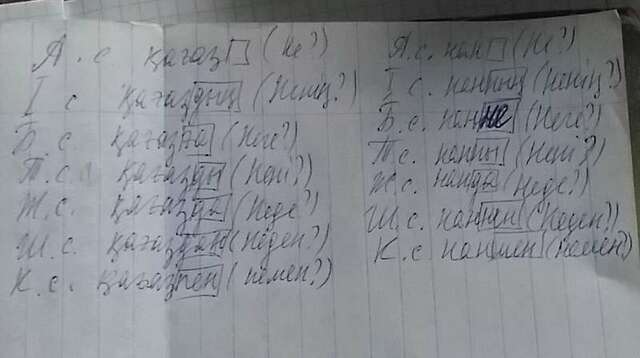 А. с қағаз (Не?)
І с қағаздың (Ненің?)
Б. с. қағазға (Неге?)
Т. с. қағазды (Нені?)
Ж. с. қағазда (Неде?)
Ш. с. қағаздан (Неден?)
К. с. қағазпен (немен?)
А. с. нан (Не?)
І с. нанның (Ненің?)
Б. с. нанне (Неге?)
Т. с. нанны (Нені?)
Ж. с. нанда (Неде?)
Ш. с. наннан (Неден?)
К. с нанмен (немен?)